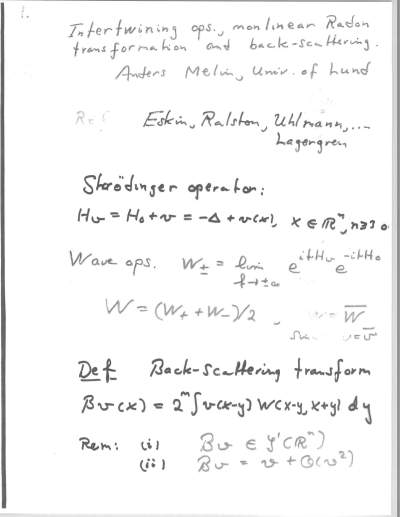 1.
Intertwining ops., nonlinear Radon
transformation and back-scattering.
Anders Melin, Univ. of Lund
Eskin, Ralston, Uhlmann, ...
Lagergren
Schrödinger operator:
Hv = H₀ + v = -Δ + v(x), x ∈ ℝⁿ, n≥3 o
Wave ops. W± = lim e^{itHv} e^{-itH₀}
t→±∞
W = (W₊ + W₋)/2, W̄
v = v̄
Def Back-scattering transform
Bv(x) = 2ⁿ∫v(x-y) W(x-y, x+y) dy
Rem: (i) Bv ∈ 𝒮'(ℝⁿ)
(ii) Bv = v + O(v²)